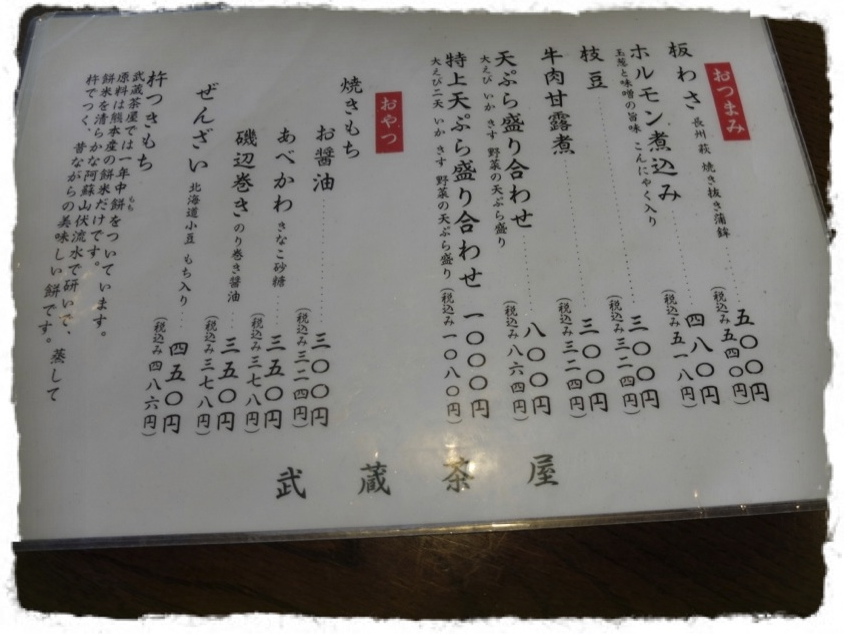 おつまみ
板わさ 長州萩 焼き抜き蒲鉾 …… 五〇〇円
(税込み 五四〇円)
ホルモン煮込み …… 四八〇円
玉葱と味噌の旨味 こんにゃく入り (税込み 五一八円)
枝豆 …… 三〇〇円
(税込み 三二四円)
牛肉甘露煮 …… 三〇〇円
(税込み 三二四円)
天ぷら盛り合わせ …… 八〇〇円
大えび いか きす 野菜の天ぷら盛り (税込み 八六四円)
特上天ぷら盛り合わせ 一〇〇〇円
大えび二天 いか きす 野菜の天ぷら盛り (税込み 一〇八〇円)
おやつ
焼きもち
お醤油 …… 三〇〇円
(税込み 三二四円)
あべかわ きなこ砂糖 …… 三五〇円
(税込み 三七八円)
磯辺巻き のり巻き醤油 … 三五〇円
(税込み 三七八円)
ぜんざい 北海道小豆 もち入り … 四五〇円
(税込み 四八六円)
杵つきもち
武蔵茶屋では一年中餅をついています。
もち
原料は熊本産の餅米だけです。
餅米を清らかな阿蘇山伏流水で研いで、蒸して
杵でつく、昔ながらの美味しい餅です。
武蔵茶屋